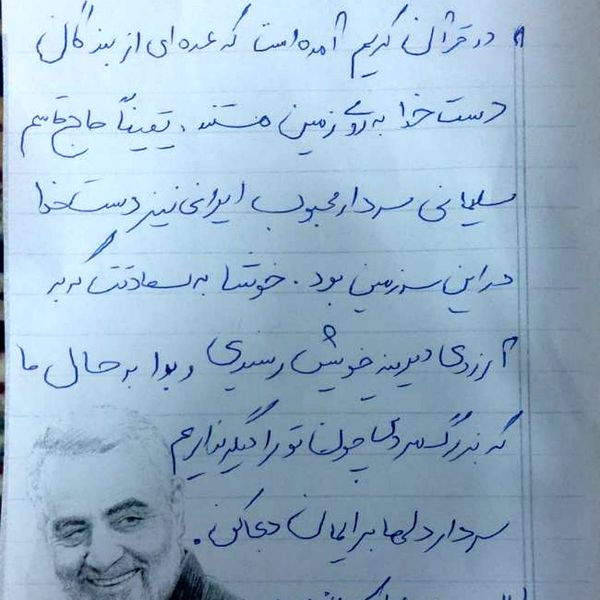 در قرآن کریم آمده است که عده ای از بندگان
دست خدا به روی زمین هستند، یقیناً حاج قاسم
سلیمانی سردار محبوب ایرانی نیز دست خدا
در این سرزمین بود. خوشا به سعادتت که به
آرزوی دیرینه خویش رسیدی و بدا به حال ما
که بزرگ مردی چون تو را دیگر نداریم
سردار دلها برایمان دعا کن.